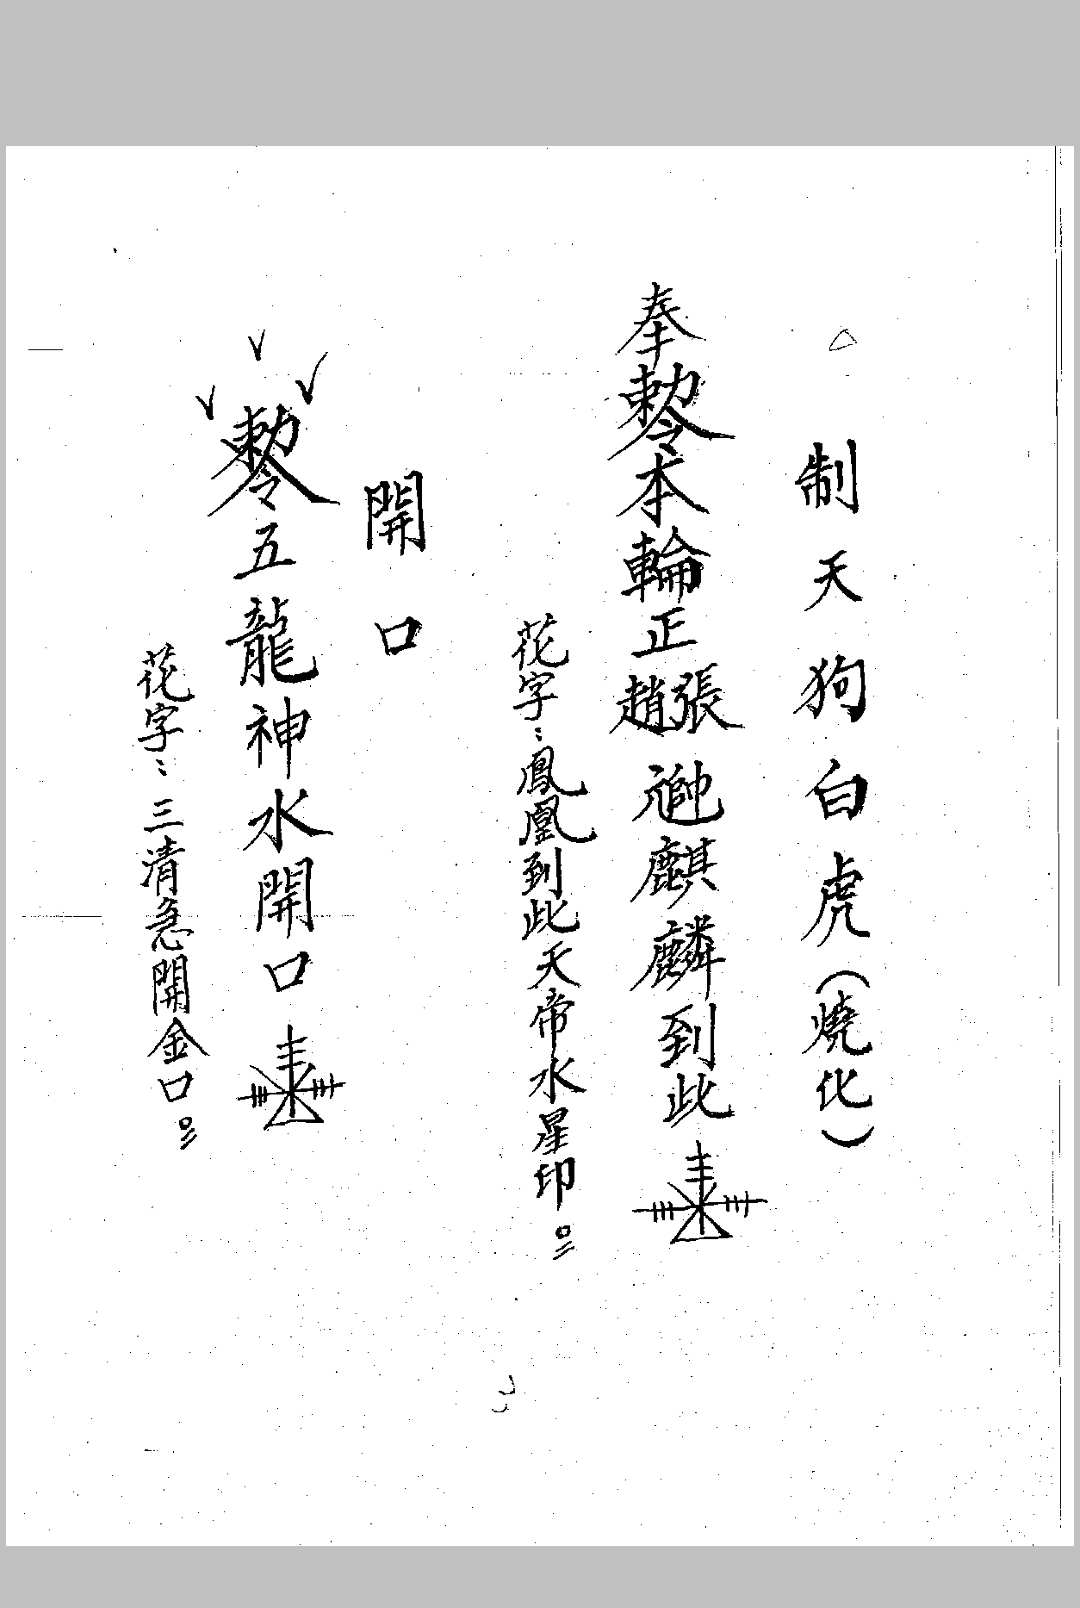 制天狗白虎(燒化)
奉勅令本輪正趙張到此麒麟到此
花字：鳳凰到此天帝水星印
開口
勅令五龍神水開口
花字：三清急開金口